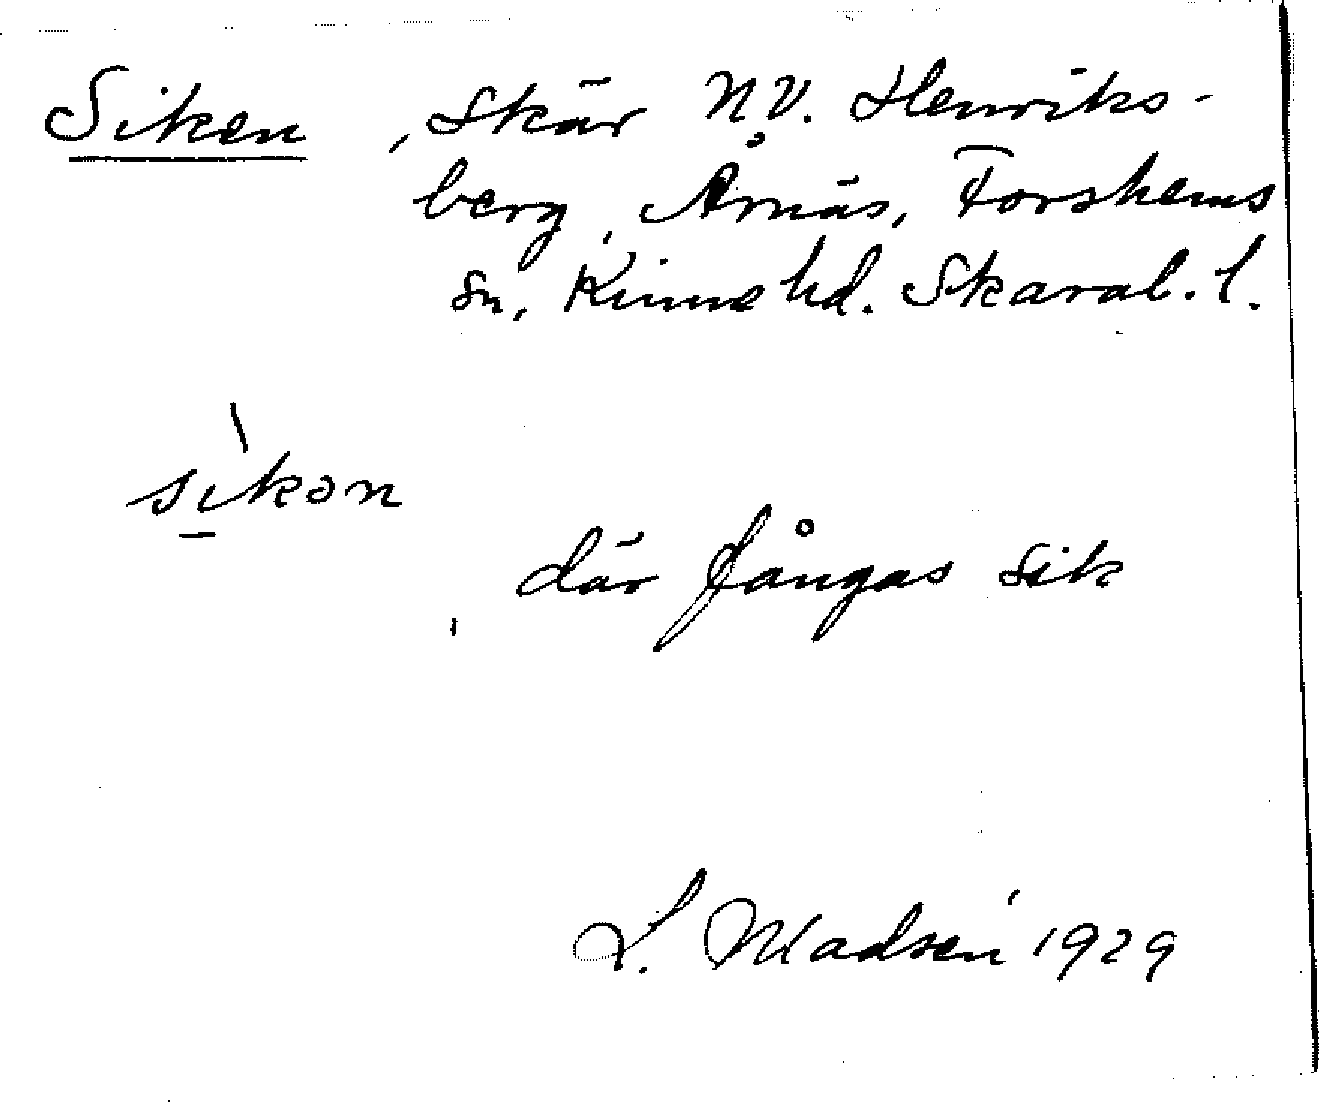 Siken, Skär N.V. Henriks-
berg, Årnäs, Forshems
sn, Kinne hd. Skarab. l.
sìkon
där fångas sik
L. Madsén 1929